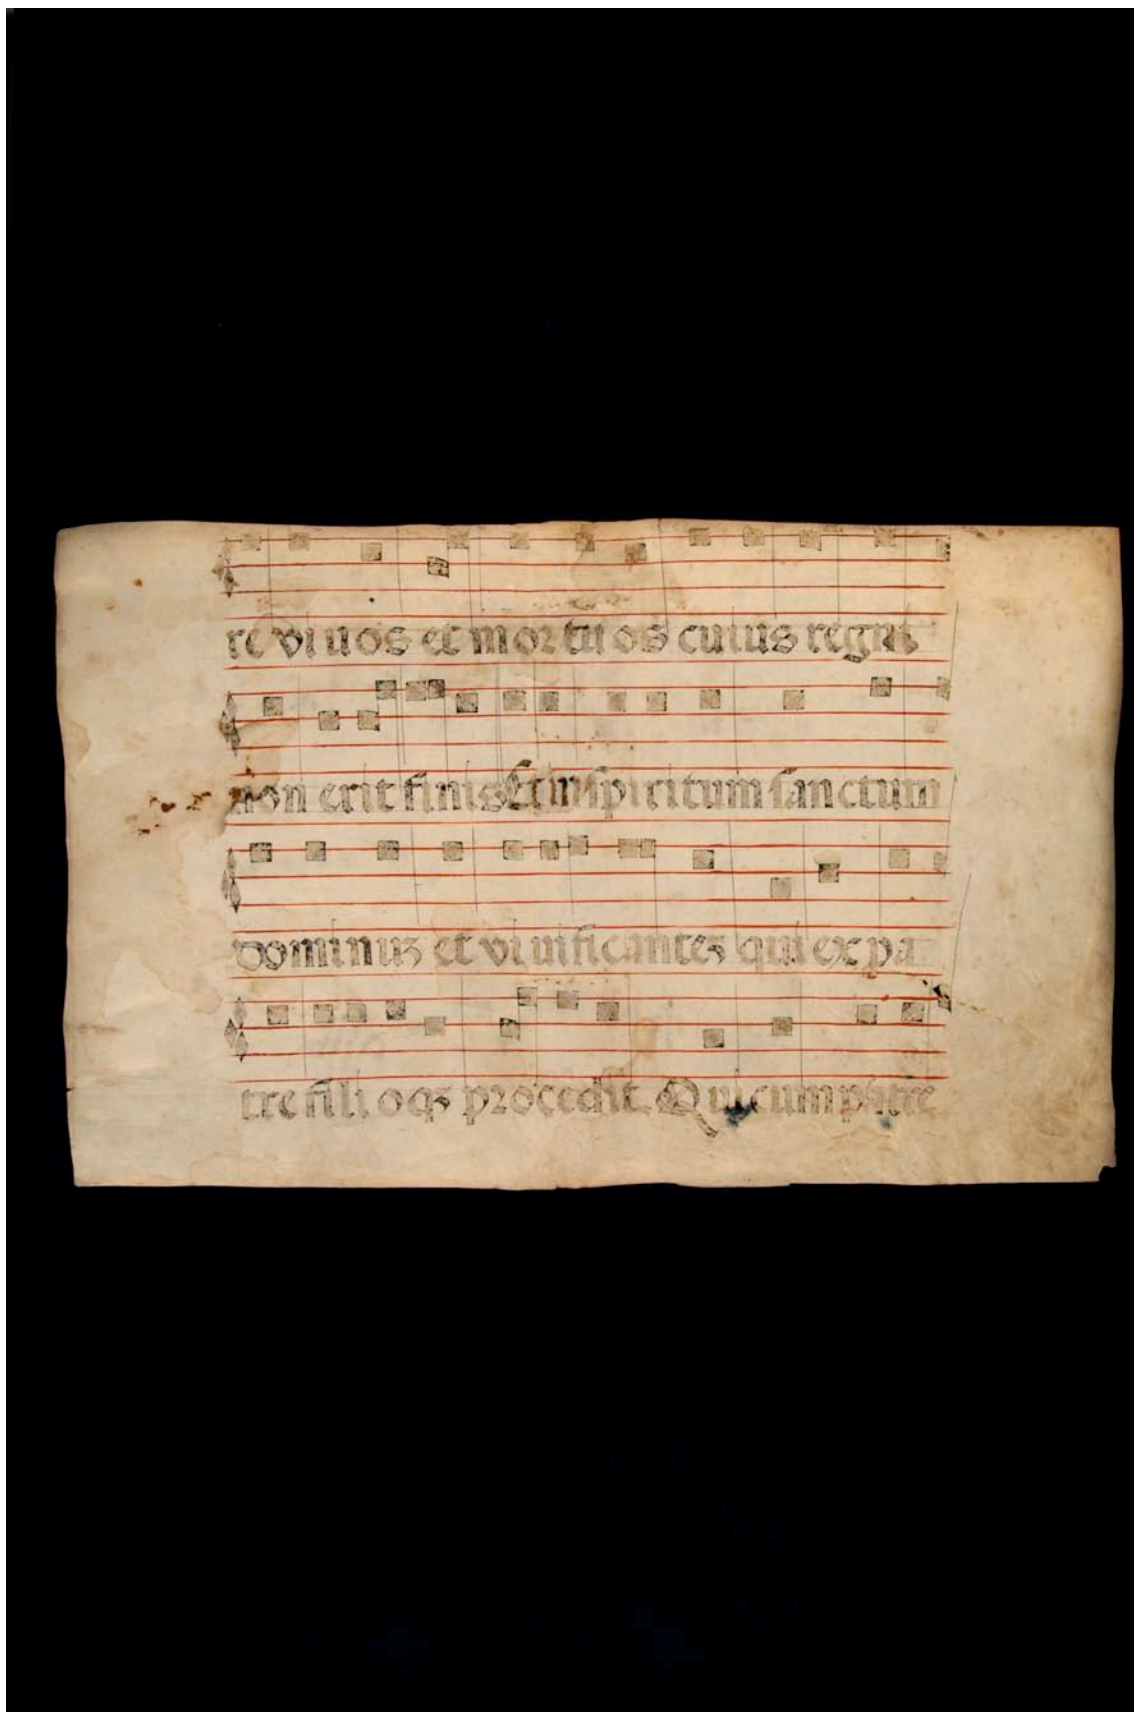 re vi uos et mortuos cuius regni
non erit finis Et in spiritum sanctum
dominuz et vi uificantez qui ex pa
tre fili oqz procedit. Qui cum patre